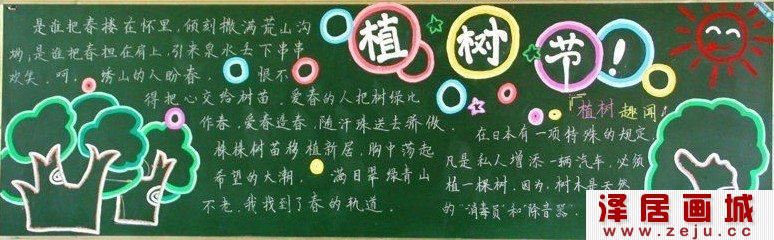 植树节!
是谁把春楼在怀里,倾刻撒满荒山沟
坳,是谁把春担在肩上,引来泉水去下串串
欢笑。呵,绣山的人盼春, 恨不
得把心交给树苗,爱春的人把树绿比
作春,爱春造春,随汗珠送去骄傲。
株株树苗移植新居,胸中荡起
希望的大潮, 满目翠绿青山
不老,我找到了春的轨道。
『植树趣闻』
在日本有一项特殊的规定,
凡是私人增添一辆汽车,必须
植一棵树,因为,树木是天然
的“消毒员”和“除音器”
泽居画城
www.zeju.cc